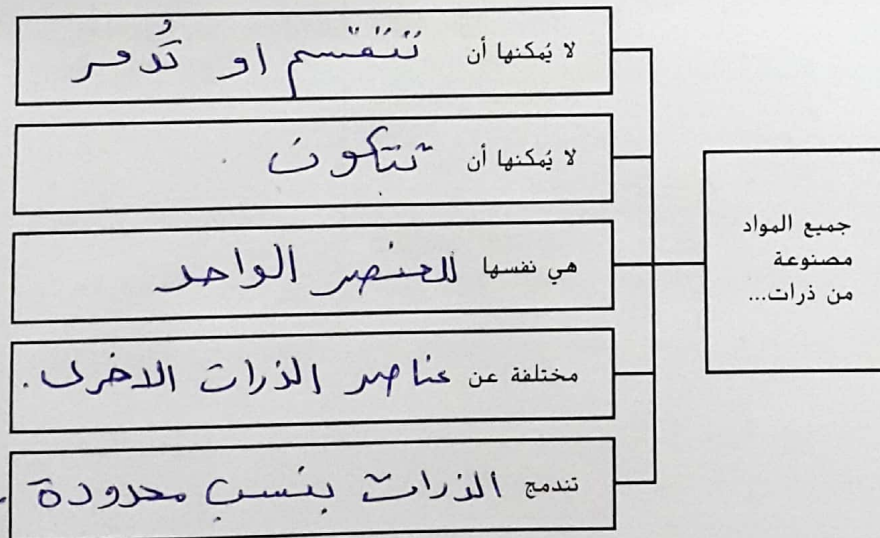 جميع المواد
مصنوعة
من ذرات...
لا يُمكنها أن تنقسم او تُدمر
لا يُمكنها أن تتكون .
هي نفسها للعنصر الواحد
مختلفة عن عناصر الذرات الاخرى .
تندمج الذرات بنسب محدودة .